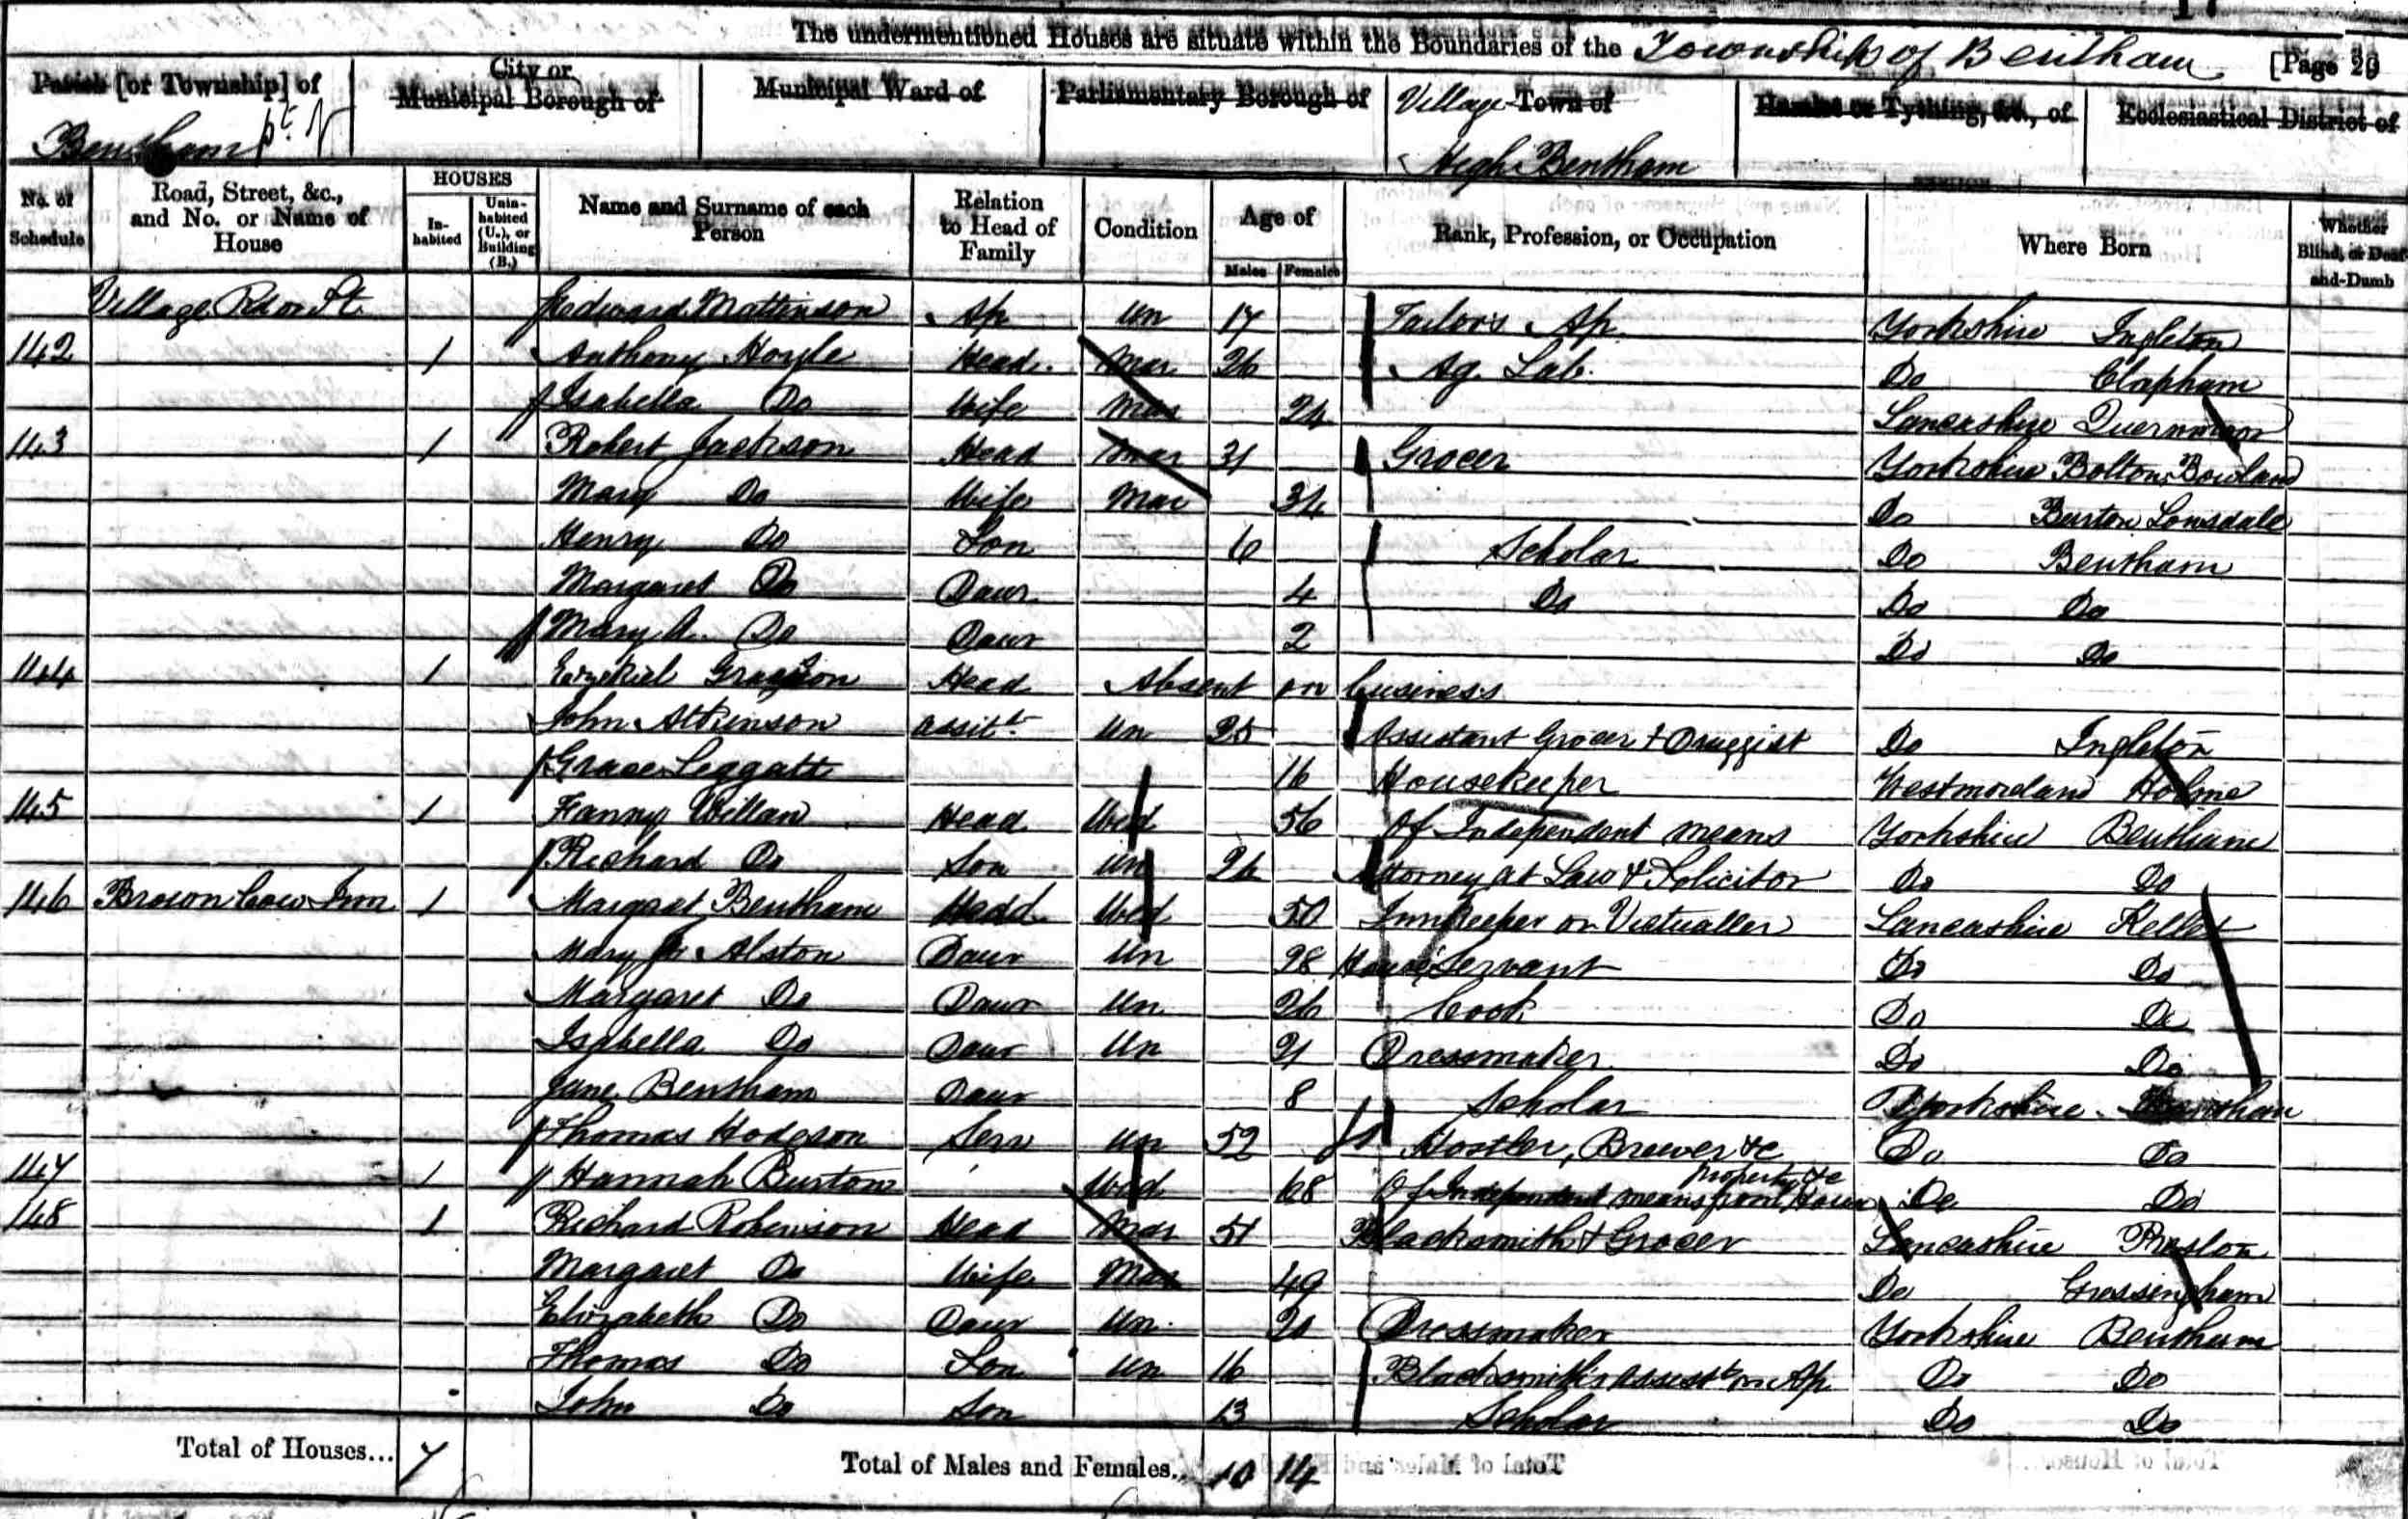 The undermentioned Houses are situate within the Boundaries of the Township of Bentham [Page 29
Parish [or Township] of
Bentham pt
City or Municipal Borough of
Municipal Ward of
Parliamentary Borough of
Village Town of
High Bentham
Hamlet or Tything, &c., of
Ecclesiastical District of
No. of Schedule
Road, Street, &c., and No. or Name of House
HOUSES
In-habited
Unin-habited (U.), or Building (B.)
Name and Surname of each Person
Relation to Head of Family
Condition
Age of
Males Females
Rank, Profession, or Occupation
Where Born
Whether Blind, or Deaf-and-Dumb
Village Rd or St. Edward Mattinson Ap Un 17 Tailors Ap. Yorkshire Ingleton
142 1 Anthony Hoyle Head Mar 26 Ag. Lab. Do Clapham
Isabella Do Wife Mar 24 Lancashire Quernmoor
143 1 Robert Jackson Head Mar 31 Grocer Yorkshire Bolton Bowland
Mary Do Wife Mar 34 Do Burton Lonsdale
Henry Do Son 6 Scholar Do Bentham
Margaret Do Daur 4 Do Do Do
Mary A. Do Daur 2 Do Do
144 1 Ezekiel Head Absent on business
John Atkinson assist. Un 25 Assistant Grocer & Druggist Do Ingleton
Grace Leggatt 16 Housekeeper Westmorland Holme
145 1 Fanny Willan Head Wid 56 Of Independent means Yorkshire Bentham
Richard Do Son Un 26 Attorney at Law & Solicitor Do Do
146 Brown Cow Inn 1 Margaret Bentham Head Wid 50 Innkeeper or Victualler Lancashire Kellet
Mary Alston Daur Un 28 House Servant Do Do
Margaret Do Daur Un 26 Cook Do Do
Isabella Do Daur Un 21 Dressmaker Do Do
Jane Bentham Daur 8 Scholar Yorkshire Bentham
Thomas Hodgson Serv Un 52 Hostler, Brewer &c Do Do
147 1 Hannah Burton Wid 68 Of Independent means from House property &c Do Do
148 1 Richard Robinson Head Mar 51 Blacksmith & Grocer Lancashire Preston
Margaret Do Wife Mar 49 Do Gressingham
Elizabeth Do Daur Un 20 Dressmaker Yorkshire Bentham
Thomas Do Son Un 16 Blacksmiths Assist. or Ap. Do Do
John Do Son 13 Scholar Do Do
Total of Houses... 7 Total of Males and Females... 10 14